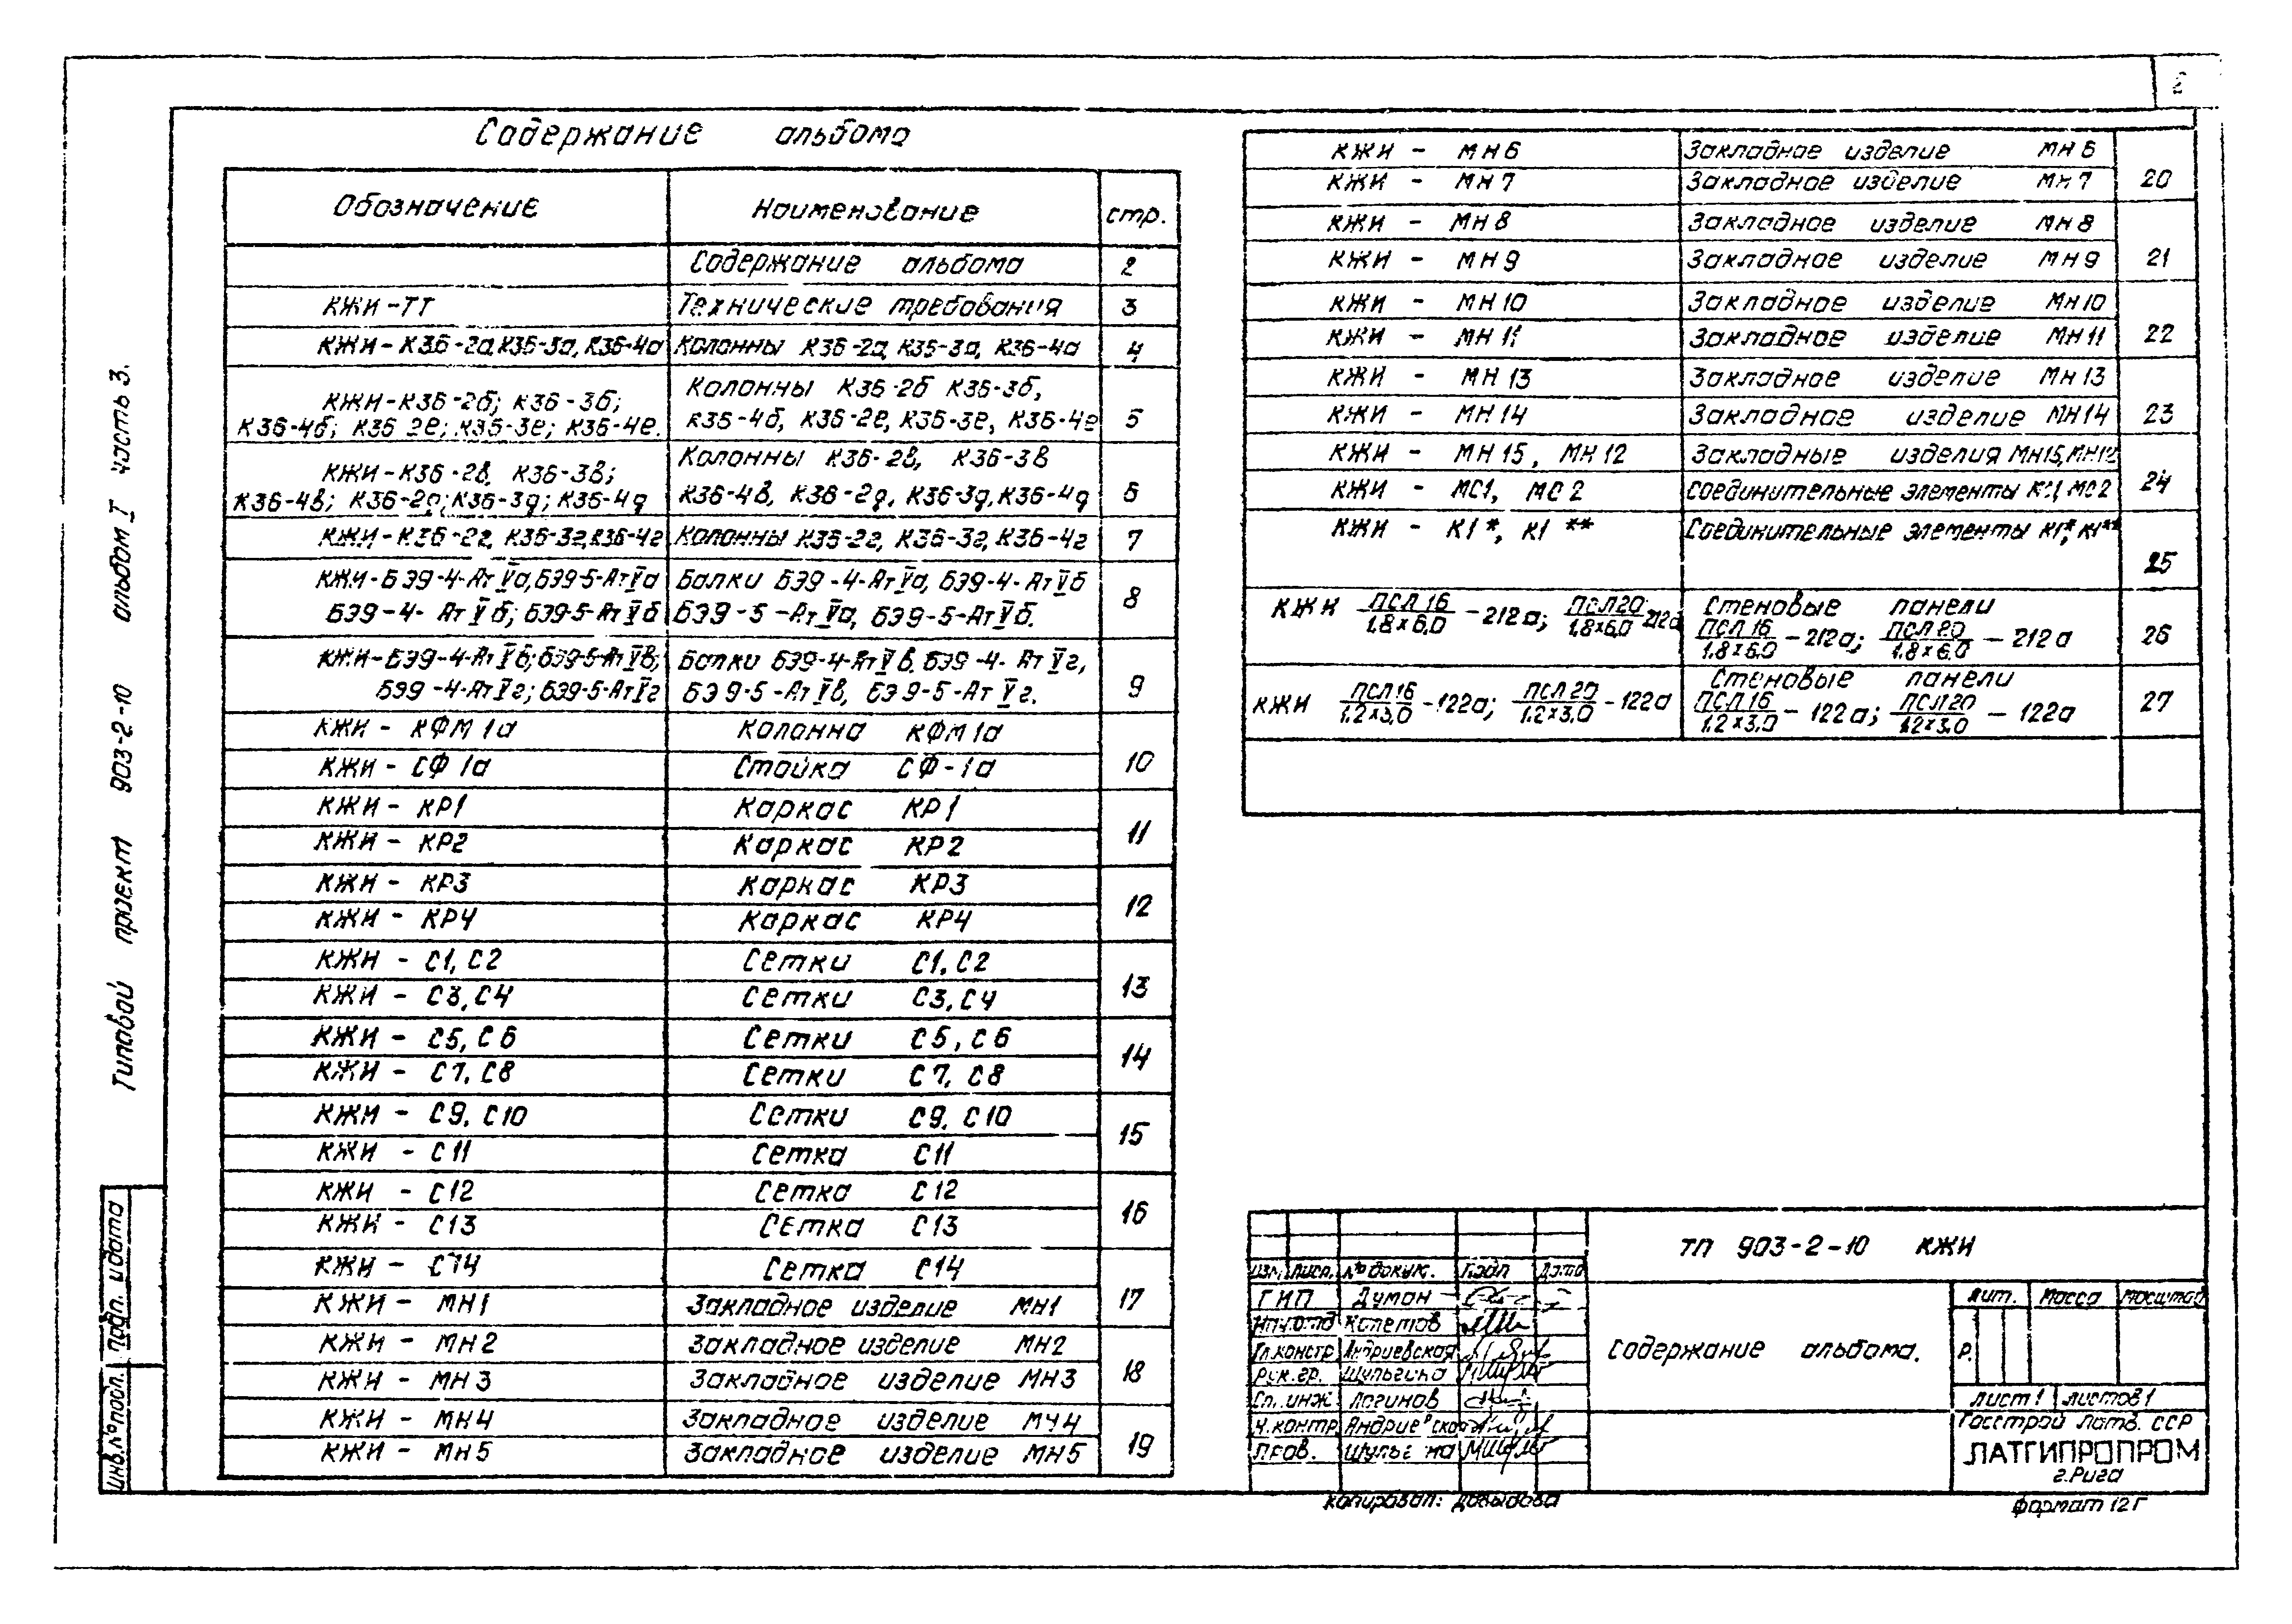 2
Содержание альбома
Обозначение Наименование стр.
Содержание альбома 2
КЖИ-ТТ Технические требования 3
КЖИ-К36-2а, К36-3а, К36-4а Колонны К36-2а, К36-3а, К36-4а 4
КЖИ-К36-2б; К36-3б; Колонны К36-2б К36-3б,
К36-4б; К36-2е; К36-3е; К36-4е. К36-4б, К36-2е, К36-3е, К36-4е 5
КЖИ-К36-2в, К36-3в; Колонны К36-2в, К36-3в
К36-4в; К36-2д; К36-3д; К36-4д К36-4в, К36-2д, К36-3д, К36-4д 6
КЖИ-К36-2г, К36-3г, К36-4г Колонны К36-2г, К36-3г, К36-4г 7
КЖИ-БЭ9-4-АтVа, БЭ9-5-АтVа Балки БЭ9-4-АтVа, БЭ9-4-АтVб
БЭ9-4-АтVб; БЭ9-5-АтVб БЭ9-5-АтVа, БЭ9-5-АтVб. 8
КЖИ-БЭ9-4-АтVв; БЭ9-5-АтVв; Балки БЭ9-4-АтVв, БЭ9-4-АтVг,
БЭ9-4-АтVг; БЭ9-5-АтVг БЭ9-5-АтVв, БЭ9-5-АтVг. 9
КЖИ - КФМ1а Колонна КФМ1а
КЖИ - СФ1а Стойка СФ-1а 10
КЖИ - КР1 Каркас КР1
КЖИ - КР2 Каркас КР2 11
КЖИ - КР3 Каркас КР3
КЖИ - КР4 Каркас КР4 12
КЖИ - С1, С2 Сетки С1, С2
КЖИ - С3, С4 Сетки С3, С4 13
КЖИ - С5, С6 Сетки С5, С6
КЖИ - С7, С8 Сетки С7, С8 14
КЖИ - С9, С10 Сетки С9, С10
КЖИ - С11 Сетка С11 15
КЖИ - С12 Сетка С12
КЖИ - С13 Сетка С13 16
КЖИ - С14 Сетка С14
КЖИ - МН1 Закладное изделие МН1 17
КЖИ - МН2 Закладное изделие МН2
КЖИ - МН3 Закладное изделие МН3 18
КЖИ - МН4 Закладное изделие МН4
КЖИ - МН5 Закладное изделие МН5 19
КЖИ - МН6 Закладное изделие МН6
КЖИ - МН7 Закладное изделие МН7 20
КЖИ - МН8 Закладное изделие МН8
КЖИ - МН9 Закладное изделие МН9 21
КЖИ - МН10 Закладное изделие МН10
КЖИ - МН11 Закладное изделие МН11 22
КЖИ - МН13 Закладное изделие МН13
КЖИ - МН14 Закладное изделие МН14 23
КЖИ - МН15, МН12 Закладные изделия МН15, МН12
КЖИ - МС1, МС2 Соединительные элементы МС1, МС2 24
КЖИ - К1*, К1** Соединительные элементы К1*, К1**
25
КЖИ ПСЛ16/1,8×6,0 - 212а; ПСЛ20/1,8×6,0 - 212а Стеновые панели
ПСЛ16/1,8×6,0 - 212а; ПСЛ20/1,8×6,0 - 212а 26
КЖИ ПСЛ16/1,2×3,0 - 122а; ПСЛ20/1,2×3,0 - 122а Стеновые панели
ПСЛ16/1,2×3,0 - 122а; ПСЛ20/1,2×3,0 - 122а 27
Типовой проект 903-2-10 альбом I часть 3.
Инв.№подл. Подп. и дата
ТП 903-2-10 КЖИ
Изм. Лист. № докум. Подп Дата
ГИП Думан
Нач.отд Колетов
Гл.констр Андриевская
Рук.гр. Шульгина
Ст. инж Логинов
Н.контр Андриевская
Пров. Шульгина
Содержание альбома.
Лит. Масса Масштаб
Р.
Лист 1 Листов 1
Госстрой Латв. ССР
ЛАТГИПРОПРОМ
г.Рига
Копировал: Давыдова
Формат 12Г